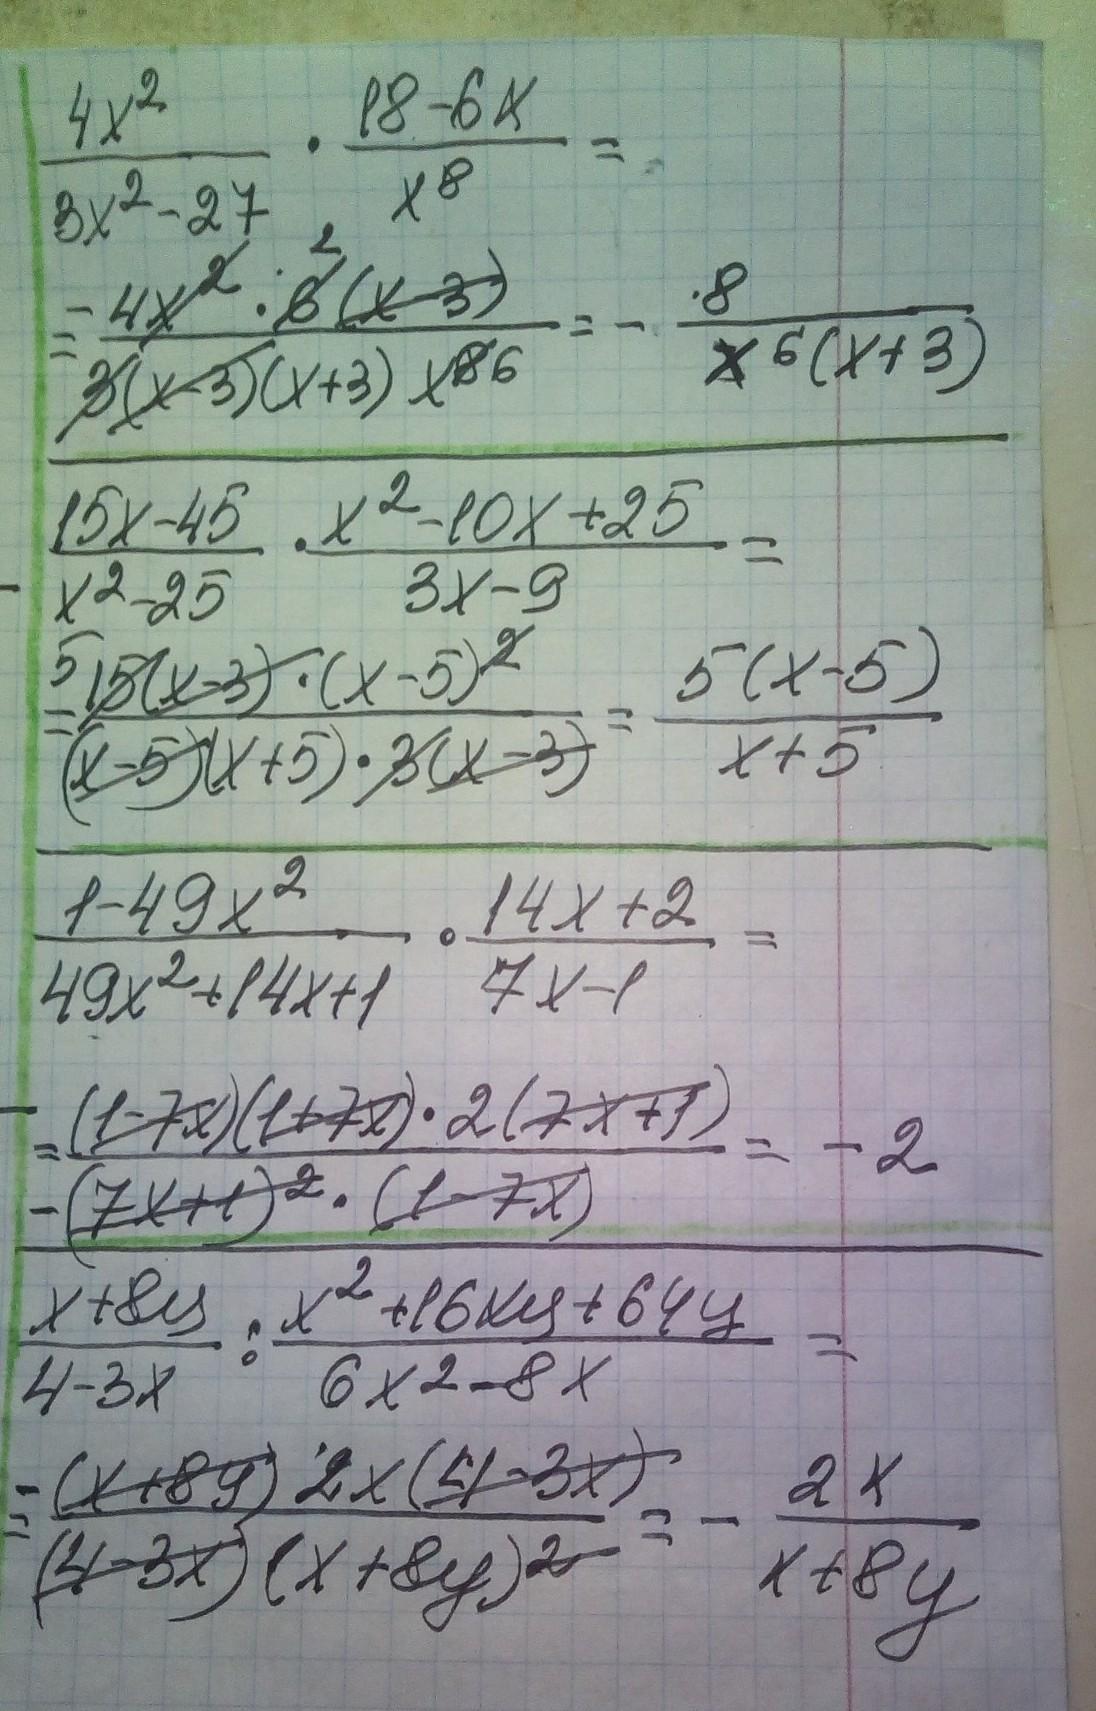 4x² / (3x² - 27) · (18 - 6x) / x⁸ =
= -4x² · 6 (x - 3) 2 / 3(x - 3)(x + 3) x⁸ 6 = - 8 / x⁶(x + 3)
(15x - 45) / (x² - 25) · (x² - 10x + 25) / (3x - 9) =
= 5 15(x - 3) · (x - 5)² / (x - 5)(x + 5) · 3(x - 3) = 5(x - 5) / (x + 5)
(1 - 49x²) / (49x² + 14x + 1) · (14x + 2) / (7x - 1) =
= (1 - 7x)(1 + 7x) · 2(7x + 1) / -(7x + 1)² · (1 - 7x) = -2
(x + 8y) / (4 - 3x) : (x² + 16xy + 64y) / (6x² - 8x) =
= -(x + 8y) 2x(4 - 3x) / (4 - 3x)(x + 8y)² = - 2x / (x + 8y)